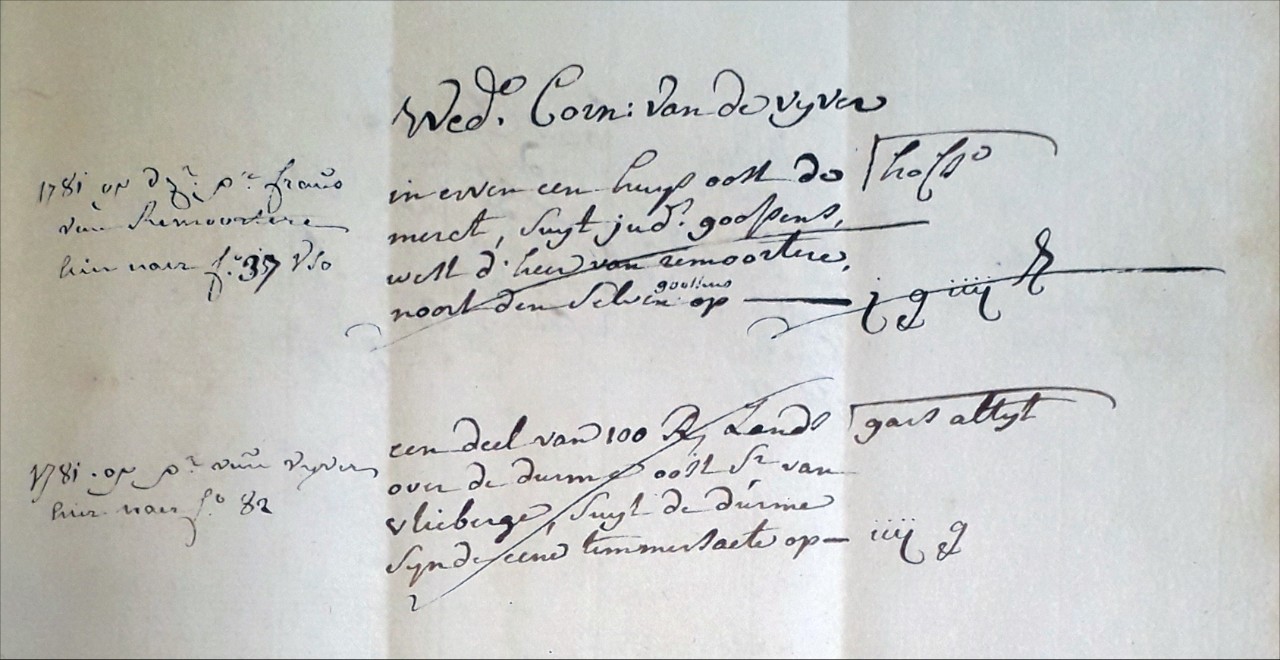 Wed.e Corn: van de vyver
1781 op d'hr. pr. frans
van Remoortere
hier naer f.o 37 vso
in erven een huys oost de
merct, suyt jud.s goossens,
west d'heer van remoortere,
noort den selven goossens op — j g iiij
een deel van 100 R Lands gars altyt
over de durme oost Sr van
vlieberge, suyt de durme
synde eene timmersaete op — iiij g
1781 . op pr. van vyver
hier naer f.o 82